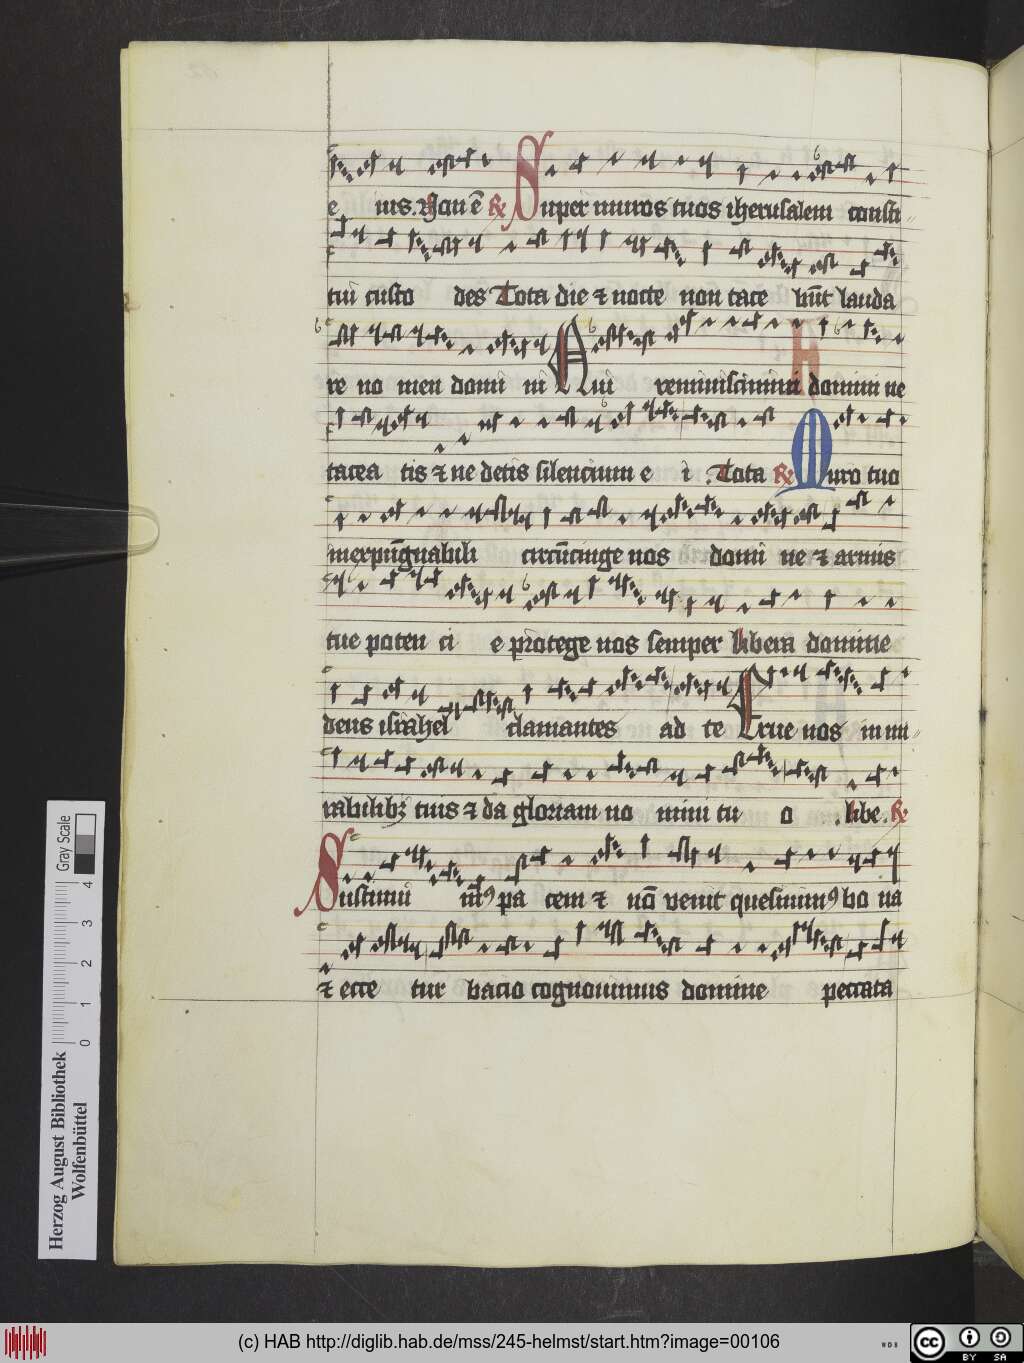 e ius. Non ē ℟ Super muros tuos iherusalem consti⸗
tui custo des Tota die ⁊ nocte non tace būt lauda
re no men domi ni Qui reminiscimini domini ne
tacea tis ⁊ ne detis silencium e i .Tota ℟ Muro tuo
inexpūgnabili circūcinge nos domi ne ⁊ armis
tue poten ci e protege nos semper libera domine
deus israhel clamantes ad te Erue nos in mi⸗
rabilibꝫ tuis ⁊ da gloriam no mini tu o .libe. ℟
Sustinui mꝰ pa cem ⁊ nō venit quesiuimꝰ bo na
⁊ ecce tur bacio cognouimus domine peccata
Herzog August Bibliothek
Wolfenbüttel
0 1 2 3 4
Gray Scale
(c) HAB http://diglib.hab.de/mss/245-helmst/start.htm?image=00106
WDB
cc BY SA